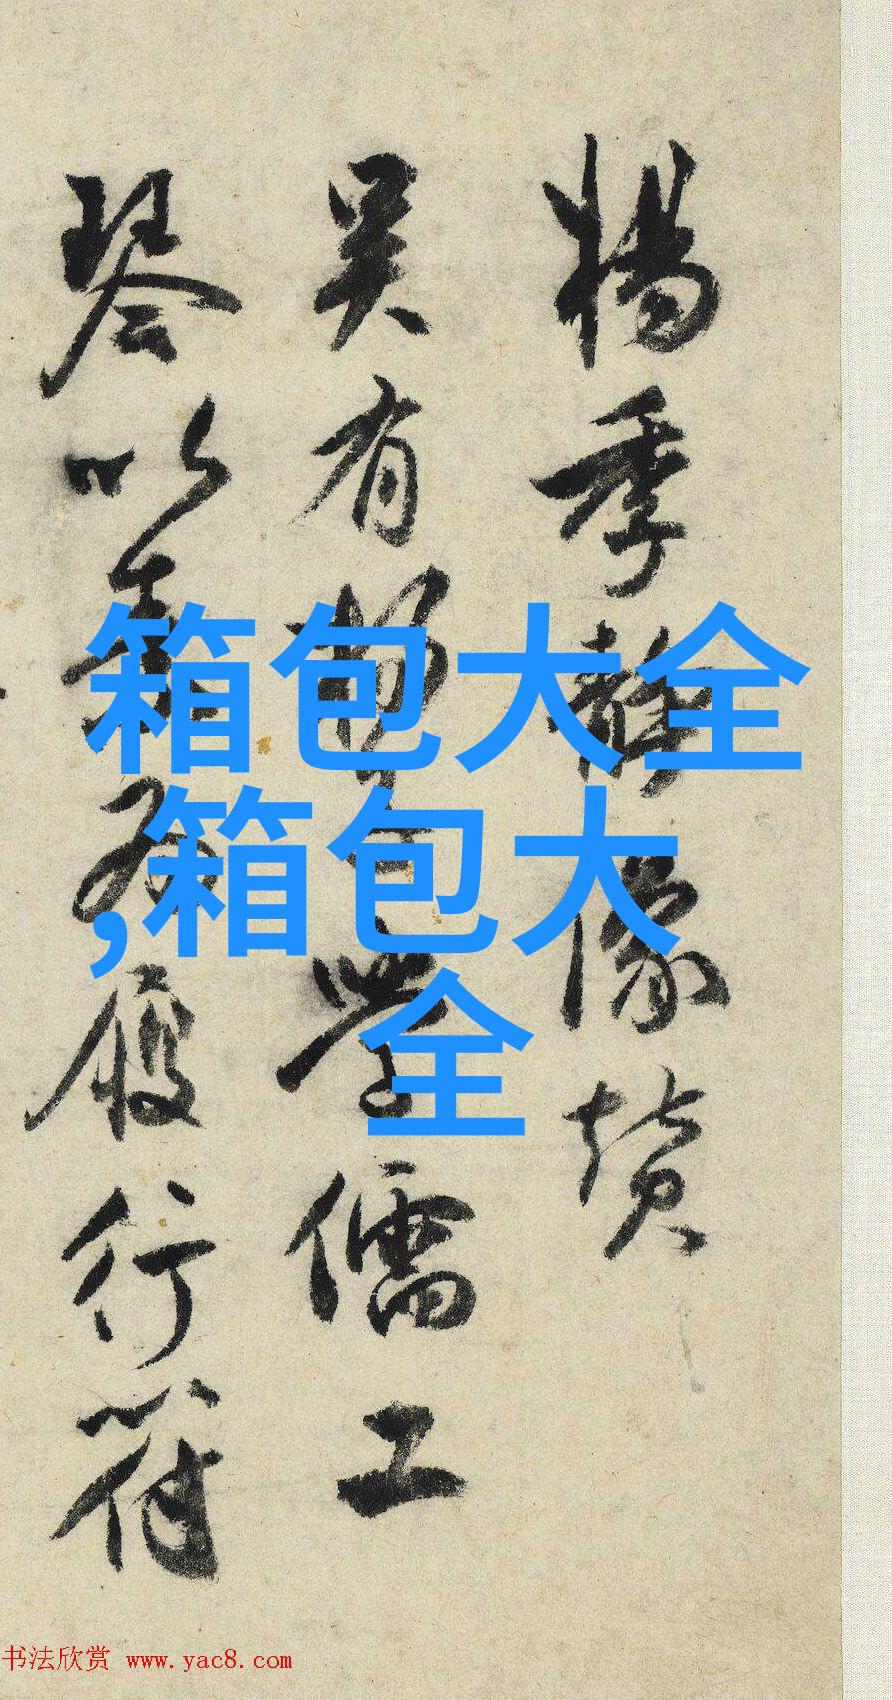 楊季靜像贊
吴有楊生學儒工
琴以為履行符
箱包大全
,箱包大
全
书法欣赏 www.yac8.com